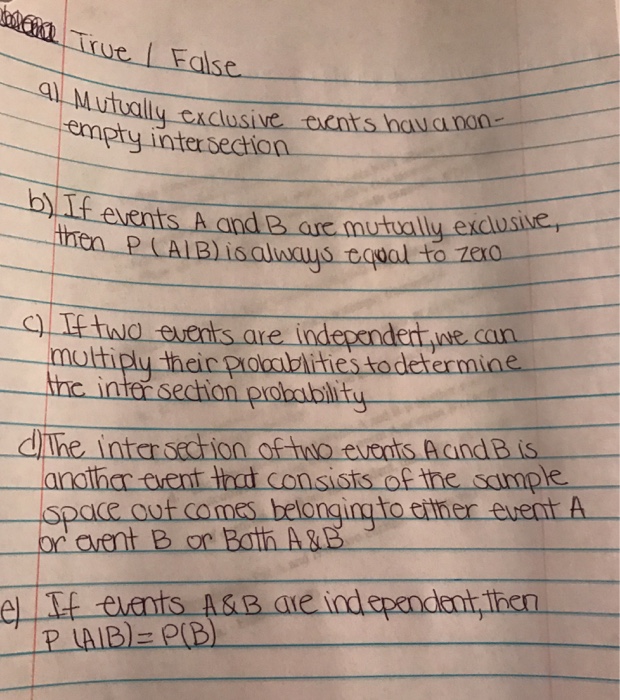 True / False
a) Mutually exclusive events hav a non-
empty intersection
b) If events A and B are mutually exclusive,
then P(A|B) is always equal to zero
c) If two events are independent, we can
multiply their probabilities to determine
the intersection probability
d) The intersection of two events A and B is
another event that consists of the sample
space outcomes belonging to either event A
or event B or Both A & B
e) If events A & B are independent, then
P(A|B) = P(B)